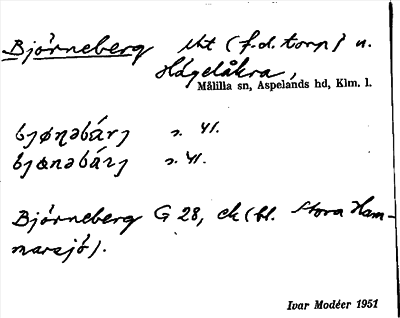 Björneberg lht (f.d. torp) u.
Hägelåkra,
Målilla sn, Aspelands hd, Klm. l.
bjøṇəbárj s. 41.
s. 41.
Björneberg G 28, ek (bl. Stora Ham-
marsjö).
Ivar Modéer 1951